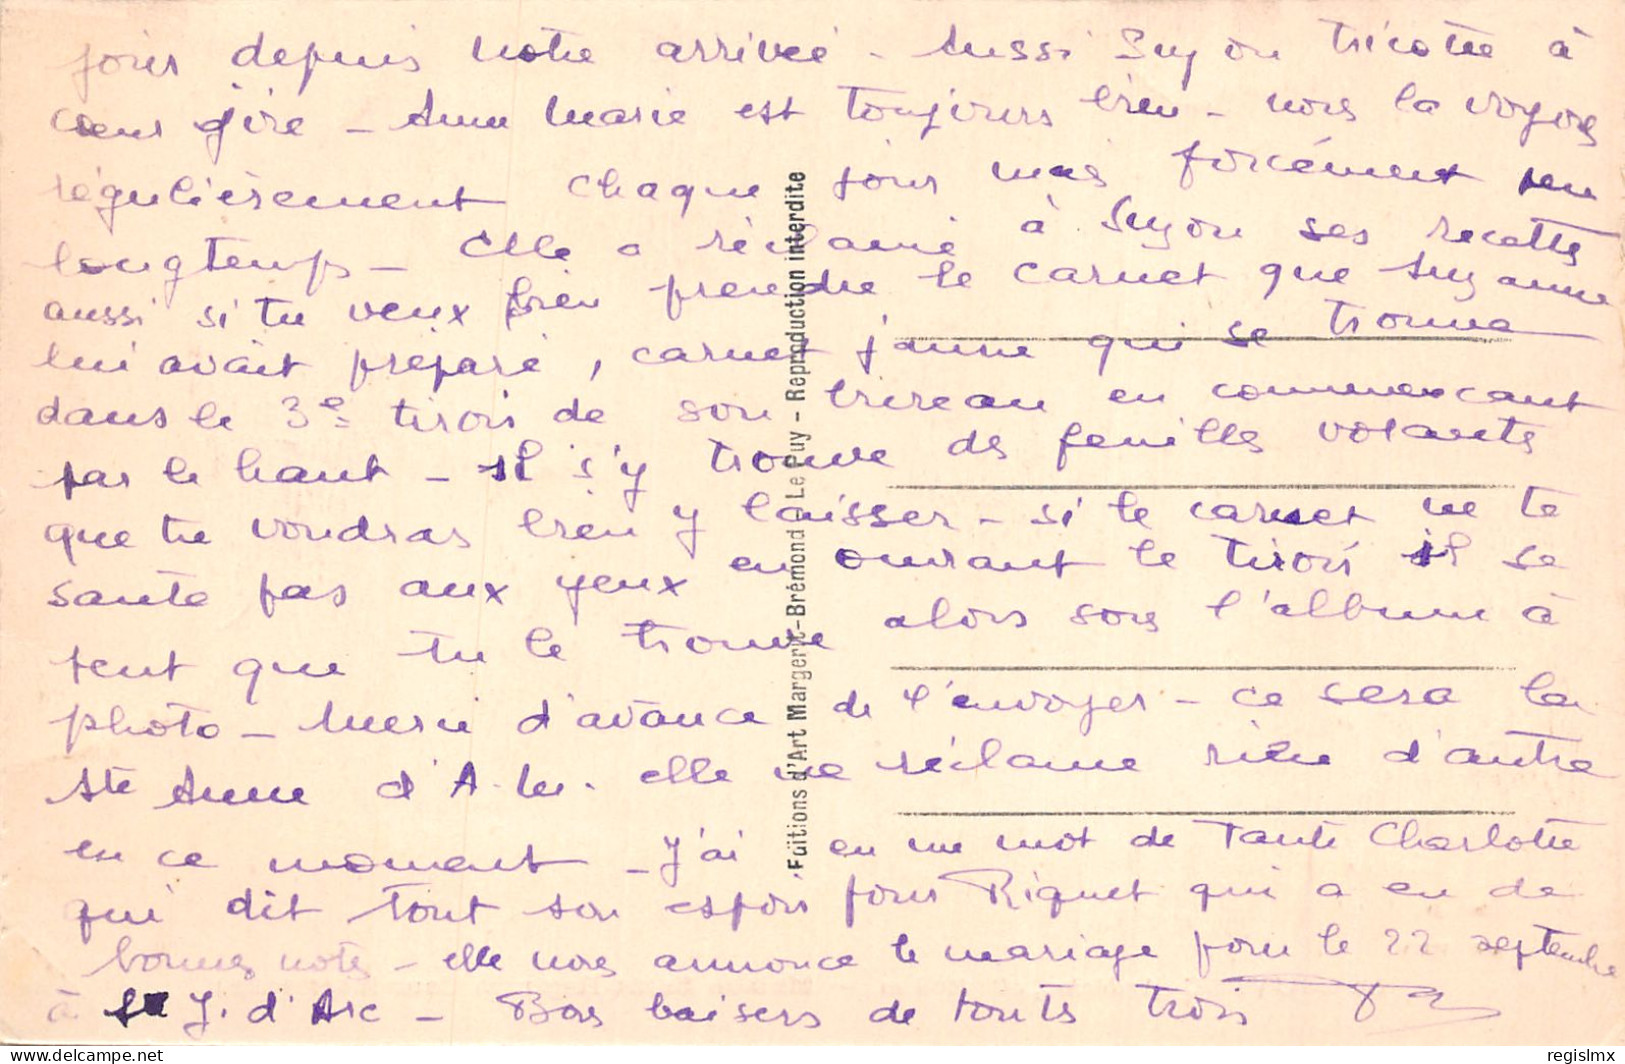 jour depuis notre arrivée - Aussi Suzon tricotte à
coeur joie - Anne Marie est toujours bien - nous la voyons
régulièrement chaque jour mais forcément peu
longtemps - Elle a réclamé à Suzon ses recettes
aussi si tu veux bien prendre le carnet que Suzanne
lui avait préparé, carnet jaune qui se trouve
dans le 3e tiroir de son bureau en commençant
par le haut - il s'y trouve des feuilles volantes
que tu voudras bien y laisser - si le carnet ne te
saute pas aux yeux en ouvrant le tiroir il se
peut que tu le trouve alors sous l'album à
photo - Merci d'avance de l'envoyer - ce sera la
Ste Anne d'A.M. elle ne réclame rien d'autre
en ce moment - J'ai eu un mot de Tante Charlotte
qui dit tout son espoir pour Riquet qui a eu de
bonnes notes - elle nous annonce le mariage pour le 22 septembre
à Ste J. d'Arc - Bons baisers de toutes trois
Editions d'Art Margerit-Brémond Le Puy - Reproduction interdite
www.delcampe.net
regislmx